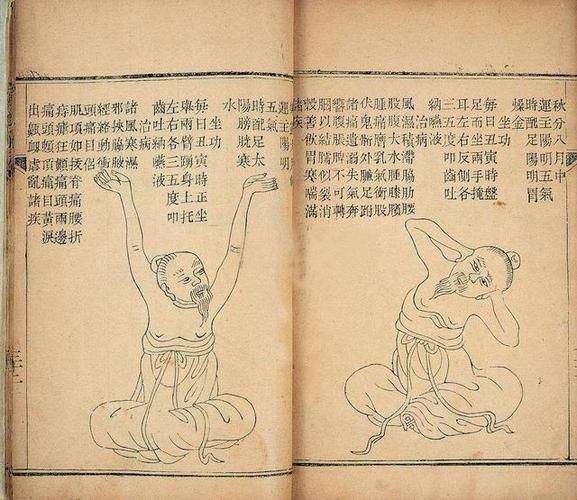 秋分八月中
運主陽明五氣
時配足陽明胃
燥金
坐功
每日丑寅時盤
足而坐兩手掩
耳左右反側各
三五度叩齒吐
納嚥液
治病
風濕積滯脇肋腰
股腹大水腫膝臏
腫痛膺乳氣衝股
伏兔外臁足跗
諸痛遺溺失氣奔
響腹脹不可轉
以結消
善胃寒喘滿
諸疾
運主陽明
五氣
時配足太
陽膀胱寒
水
坐功
每日丑寅時正坐
舉兩臂踴身上托
左右各三五度叩
齒吐納嚥液
治病
諸風寒濕
邪挾脇腋
經絡動衝
頭痛目
肌項如拔脊痛腰折
痔瘧狂顛痛頭兩邊
痛頭頂痛目黃淚
出鼽衄亂諸疾